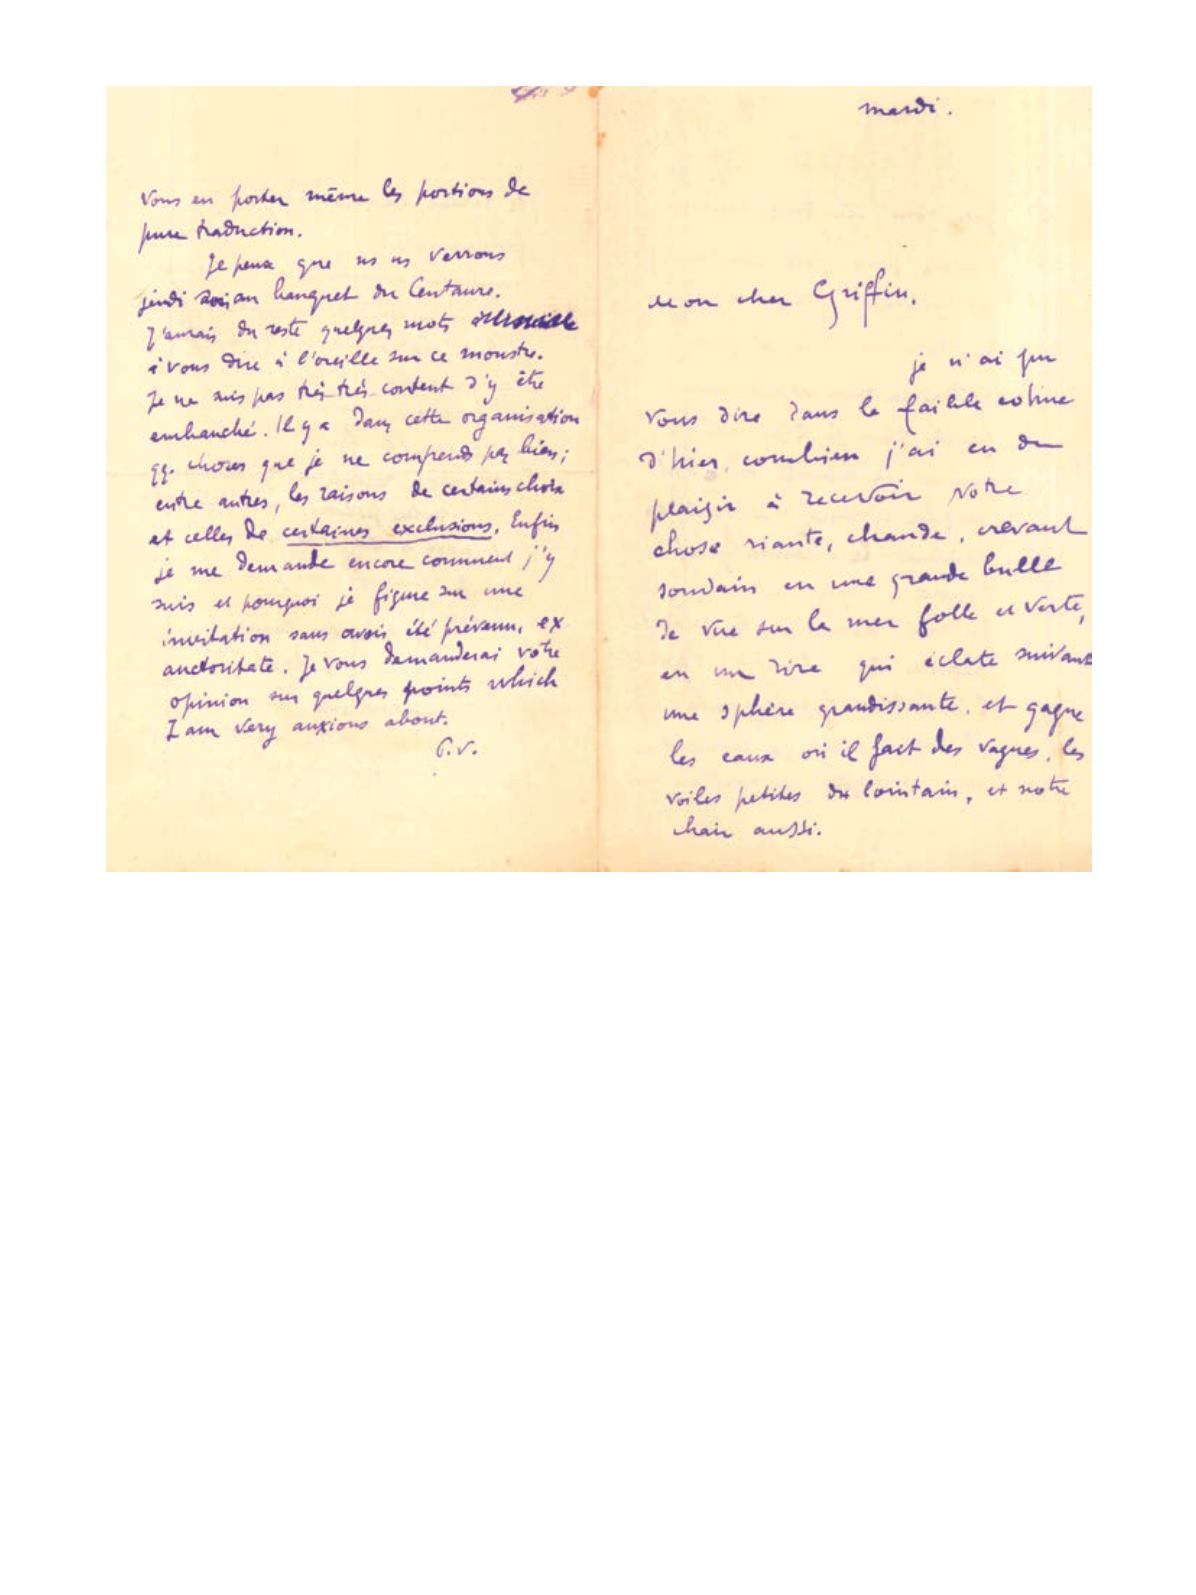 mardi.
Mon cher Griffin,
je n'ai pu
vous dire dans la faible cohue
d'hier, combien j'ai eu du
plaisir à recevoir votre
chose riante, chaude, crevant
soudain en une grande bulle
de vue sur la mer folle et verte,
en un rire qui éclate suivant
une sphère grandissante, et gagne
les eaux où il fait des vagues, les
voiles petites du lointain, et notre
chair aussi.
vous en porter même les portions de
pure traduction.
Je pense que ns ns verrons
jeudi soir au banquet du Centaure.
J'aurais du reste quelques mots
à vous dire à l'oreille sur ce monstre.
Je ne suis pas très très content d'y être
embauché. Il y a dans cette organisation
qq. choses que je ne comprends pas bien;
entre autres, les raisons de certains choix
et celles de certaines exclusions. Enfin
je me demande encore comment j'y
suis et pourquoi je figure sur une
invitation sans avoir été prévenu, ex
auctoritate. Je vous demanderai votre
opinion sur quelques points which
I am very anxious about.
P.V.